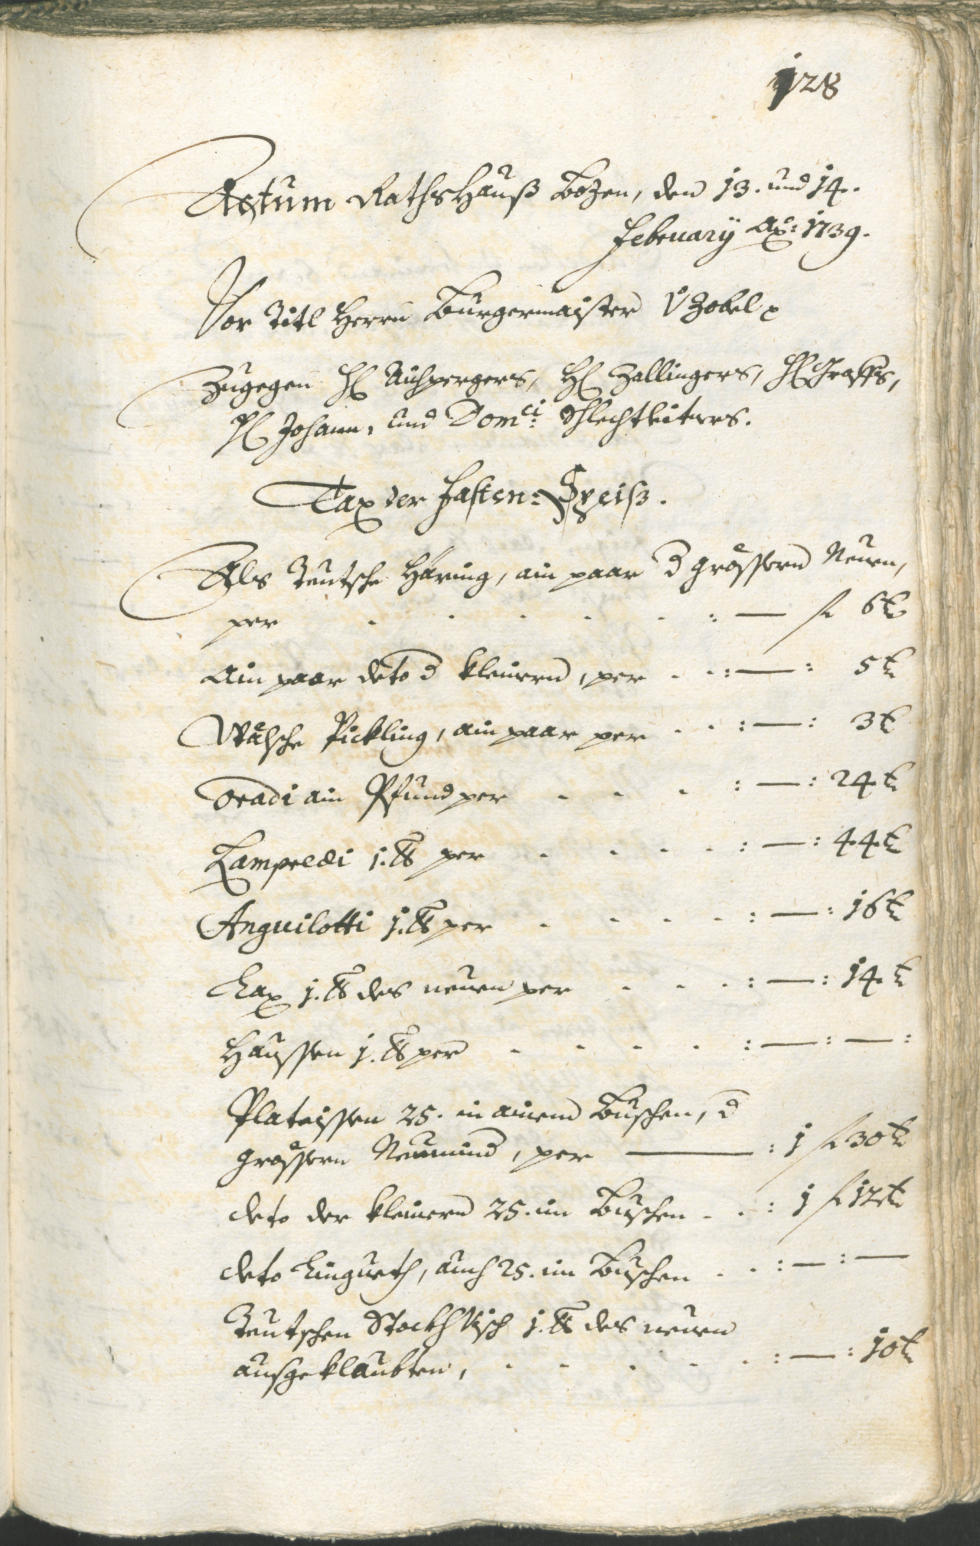 128
Actum Rathshauß Bozen, den 13. und 14.
February Ao: 1739.
Vor Titl Herrn Burgermaister v Zobel
Zugegen H Aichpergers, H Zallingers, H Graffs,
H Johann, und Domci: Schlechtleiters.
Tax der Fasten: Speiß.
Als Teutsche Häring, ain paar d grössern Neuen,
per . . . . . : — f 6 k
Ain paar deto d kleinern, per . . : — : 5 k
Wälsche Pickling, ain paar per . . : — : 3 k
Oradi ain Pfund per . . . : — : 24 k
Lampredi 1. ℔ per . . . . : — : 44 k
Anguilotti 1. ℔ per . . . . : — : 16 k
Lax 1. ℔ des neuen per . . . : — : 14 k
Haussen 1. ℔ per . . . . : — : — :
Plateissen 25. in ainem Buschen, d
grössern , per — : 1 f 30 k
deto der kleinern 25. im Buschen . . : 1 f 12 k
deto , auch 25. im Buschen . . : — : —
Teutschen Stockhfisch 1. ℔ des neuen
ausgeklaubten, . . . . . : — : 10 k